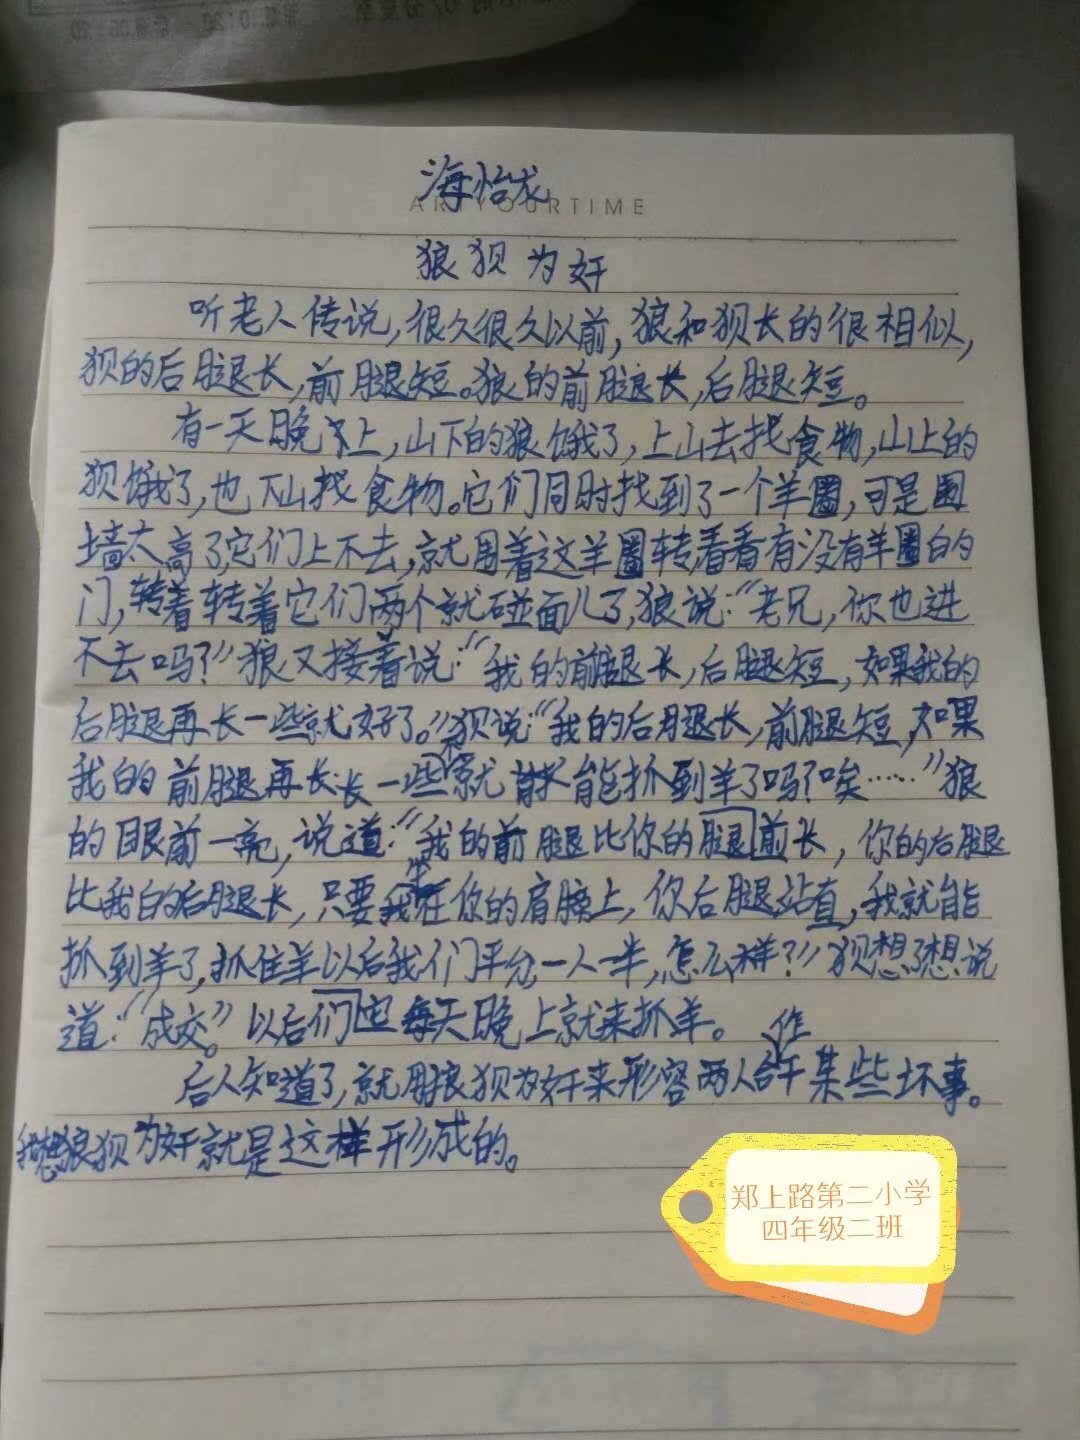 海怡龙
ARTYOURTIME
狼狈为奸
听老人传说,很久很久以前,狼和狈长的很相似,
狈的后腿长,前腿短。狼的前腿长,后腿短。
有一天晚上,山下的狼饿了,上山去找食物,山上的
狈饿了,也下山找食物。它们同时找到了一个羊圈,可是围
墙太高了,它们上不去,就围着这羊圈转着看有没有羊圈的
门,转着转着它们两个就碰面儿了,狼说:“老兄,你也进
不去吗?”狼又接着说:“我的前腿长,后腿短,如果我的
后腿再长一些就好了。”狈说:“我的后腿长,前腿短,如果
我的前腿再长长一些就能抓到羊了吗?唉……”狼
的眼前一亮,说道:“我的前腿比你的腿前长,你的后腿
比我的后腿长,只要我坐在你的肩膀上,你后腿站直,我就能
抓到羊了,抓住羊以后我们平分,一人一半,怎么样?”狈想了想说
道:“成交。”以后们它每天晚上就来抓羊。
后人知道了,就用狼狈为奸来形容两人合作干某些坏事。
我想狼狈为奸就是这样形成的。
郑上路第二小学
四年级二班